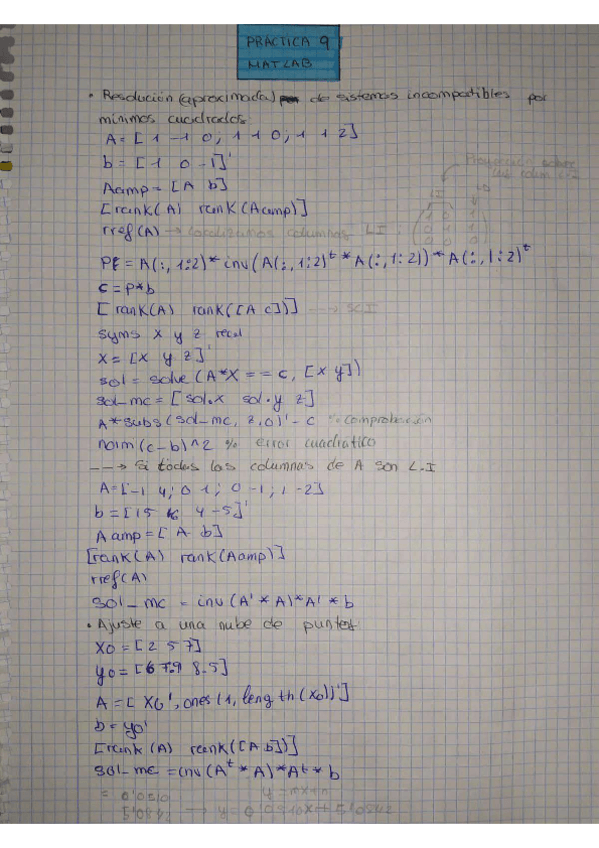 PRÁCTICA 9
MATLAB
• Resolución (aproximada) de sistemas incompatibles por
mínimos cuadrados
A = [1 -1 0; 1 1 0; 1 1 2]
b = [1 0 -1]'
Aamp = [A b]
[rank(A) rank(Aamp)]
rref(A) → localizamos columnas LI
= A(:, 1:2)*inv(A(:,1:2)ᵗ * A(:,1:2))*A(:,1:2)ᵗ
c = P*b
[rank(A) rank([A c])] ---→ SCI
syms x y z real
X = [x y z]'
sol = solve(A*X == c, [x y])
sol_mc = [sol.x sol.y z]
A*subs(sol_mc, z,0)' - c % comprobación
norm(c-b)^2 % error cuadrático
---→ Si todas las columnas de A son L.I
A = [-1 4; 0 1; 0 -1; 1 -2]
b = [15 4 -5]'
Aamp = [A b]
[rank(A) rank(Aamp)]
rref(A)
sol_mc = inv(A' * A)*A' * b
• Ajuste a una nube de puntos
X0 = [2 5 7]
y0 = [6 7.9 8.5]
A = [X0', ones(1, length(X0))']
b = y0'
[rank(A) rank([A b])]
sol_mc = inv(Aᵗ * A)*Aᵗ * b